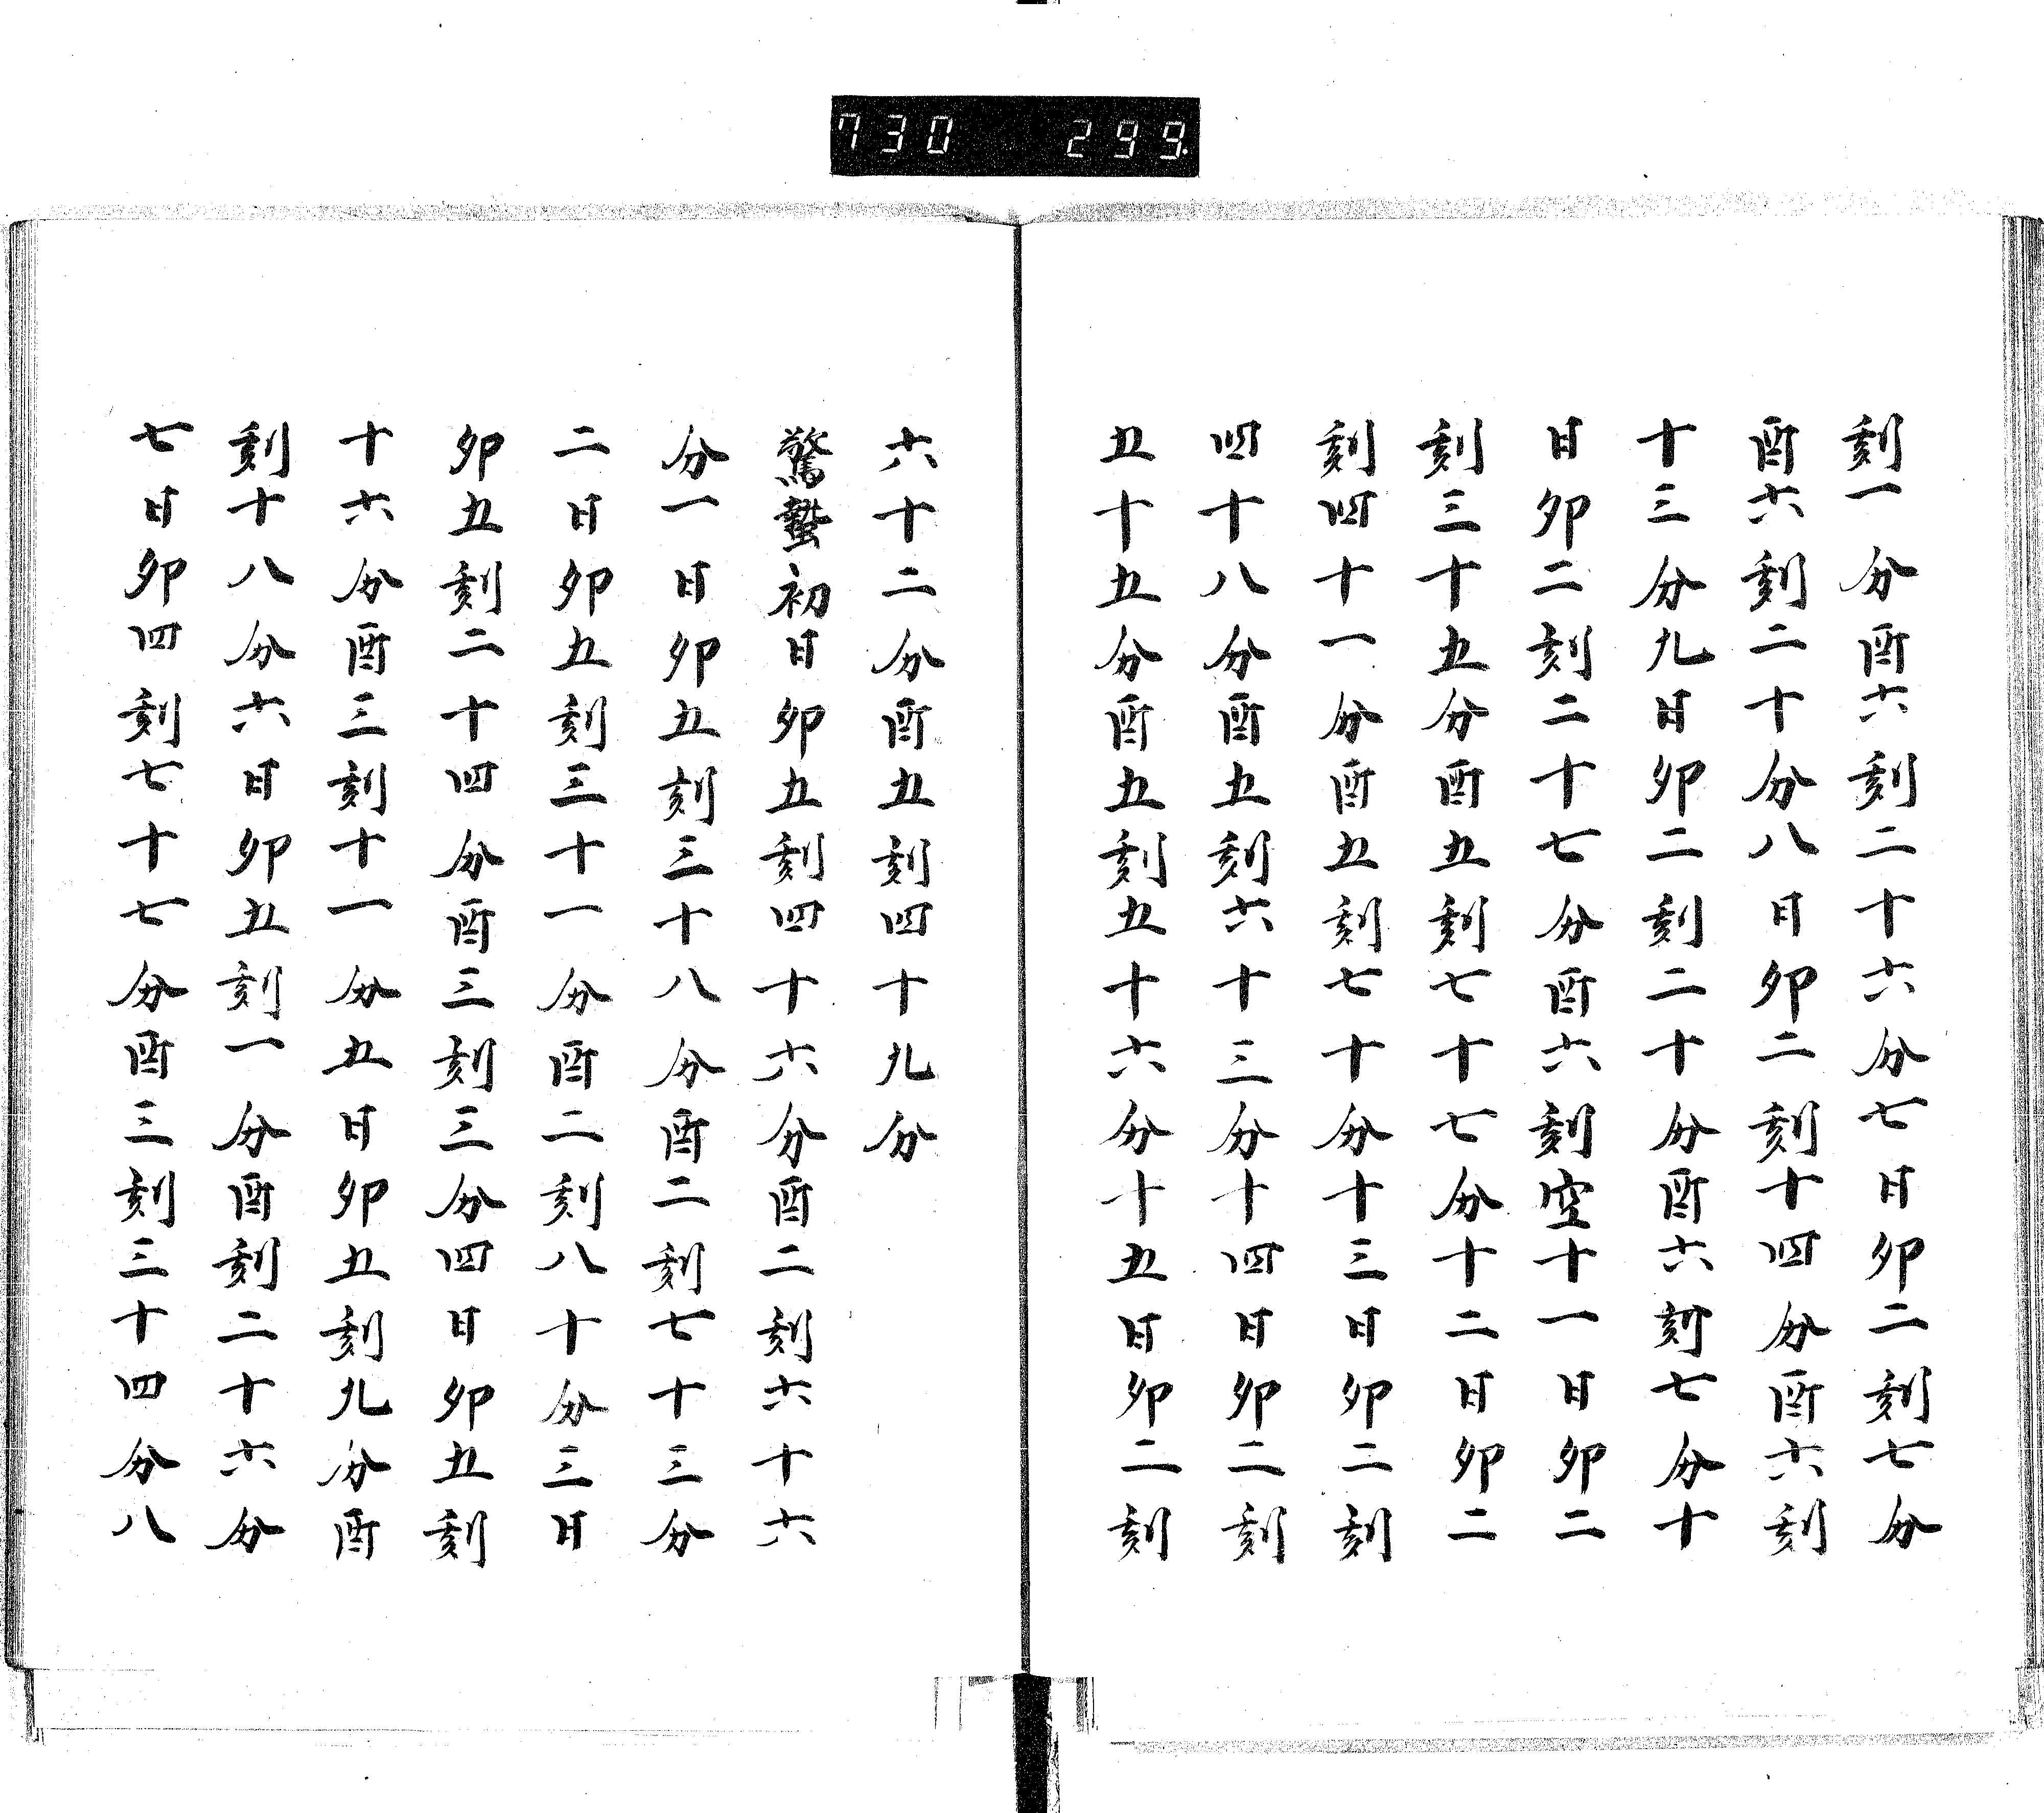 730 299
刻一分酉六刻二十六分七日卯二刻七分
酉六刻二十分八日卯二刻十四分酉六刻
十三分九日卯二刻二十分酉六刻七分十
日卯二刻二十七分酉六刻空十一日卯二
刻三十五分酉五刻七十七分十二日卯二
刻四十一分酉五刻七十分十三日卯二刻
四十八分酉五刻六十三分十四日卯二刻
五十五分酉五刻五十六分十五日卯二刻
六十二分酉五刻四十九分
驚蟄初日卯五刻四十六分酉二刻六十六
分一日卯五刻三十八分酉二刻七十三分
二日卯五刻三十一分酉二刻八十分三日
卯五刻二十四分酉三刻三分四日卯五刻
十六分酉三刻十一分五日卯五刻九分酉
刻十八分六日卯五刻一分酉刻二十六分
七日卯四刻七十七分酉三刻三十四分八